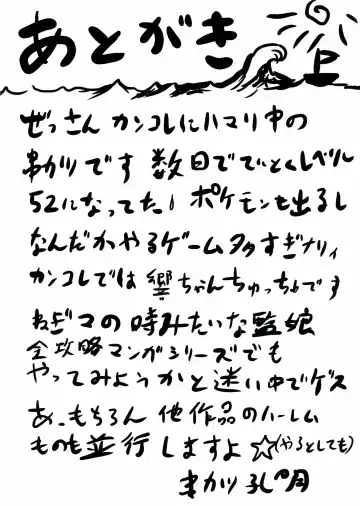 あとがき 上
ぜっさんカンコレにハマリ中の
串カツです 数日でていとくレベル
52になってた！ポケモンも出るし
なんだかやるゲーム多すぎナリィ
カンコレでは響ちゃんちゅっちゅです
ねぎマの時みたいな艦娘
全攻略マンガシリーズでも
やってみようかと迷い中でゲス
あ、もちろん他作品のハーレム
ものも並行しますよ☆(やるとしても)
串カツ